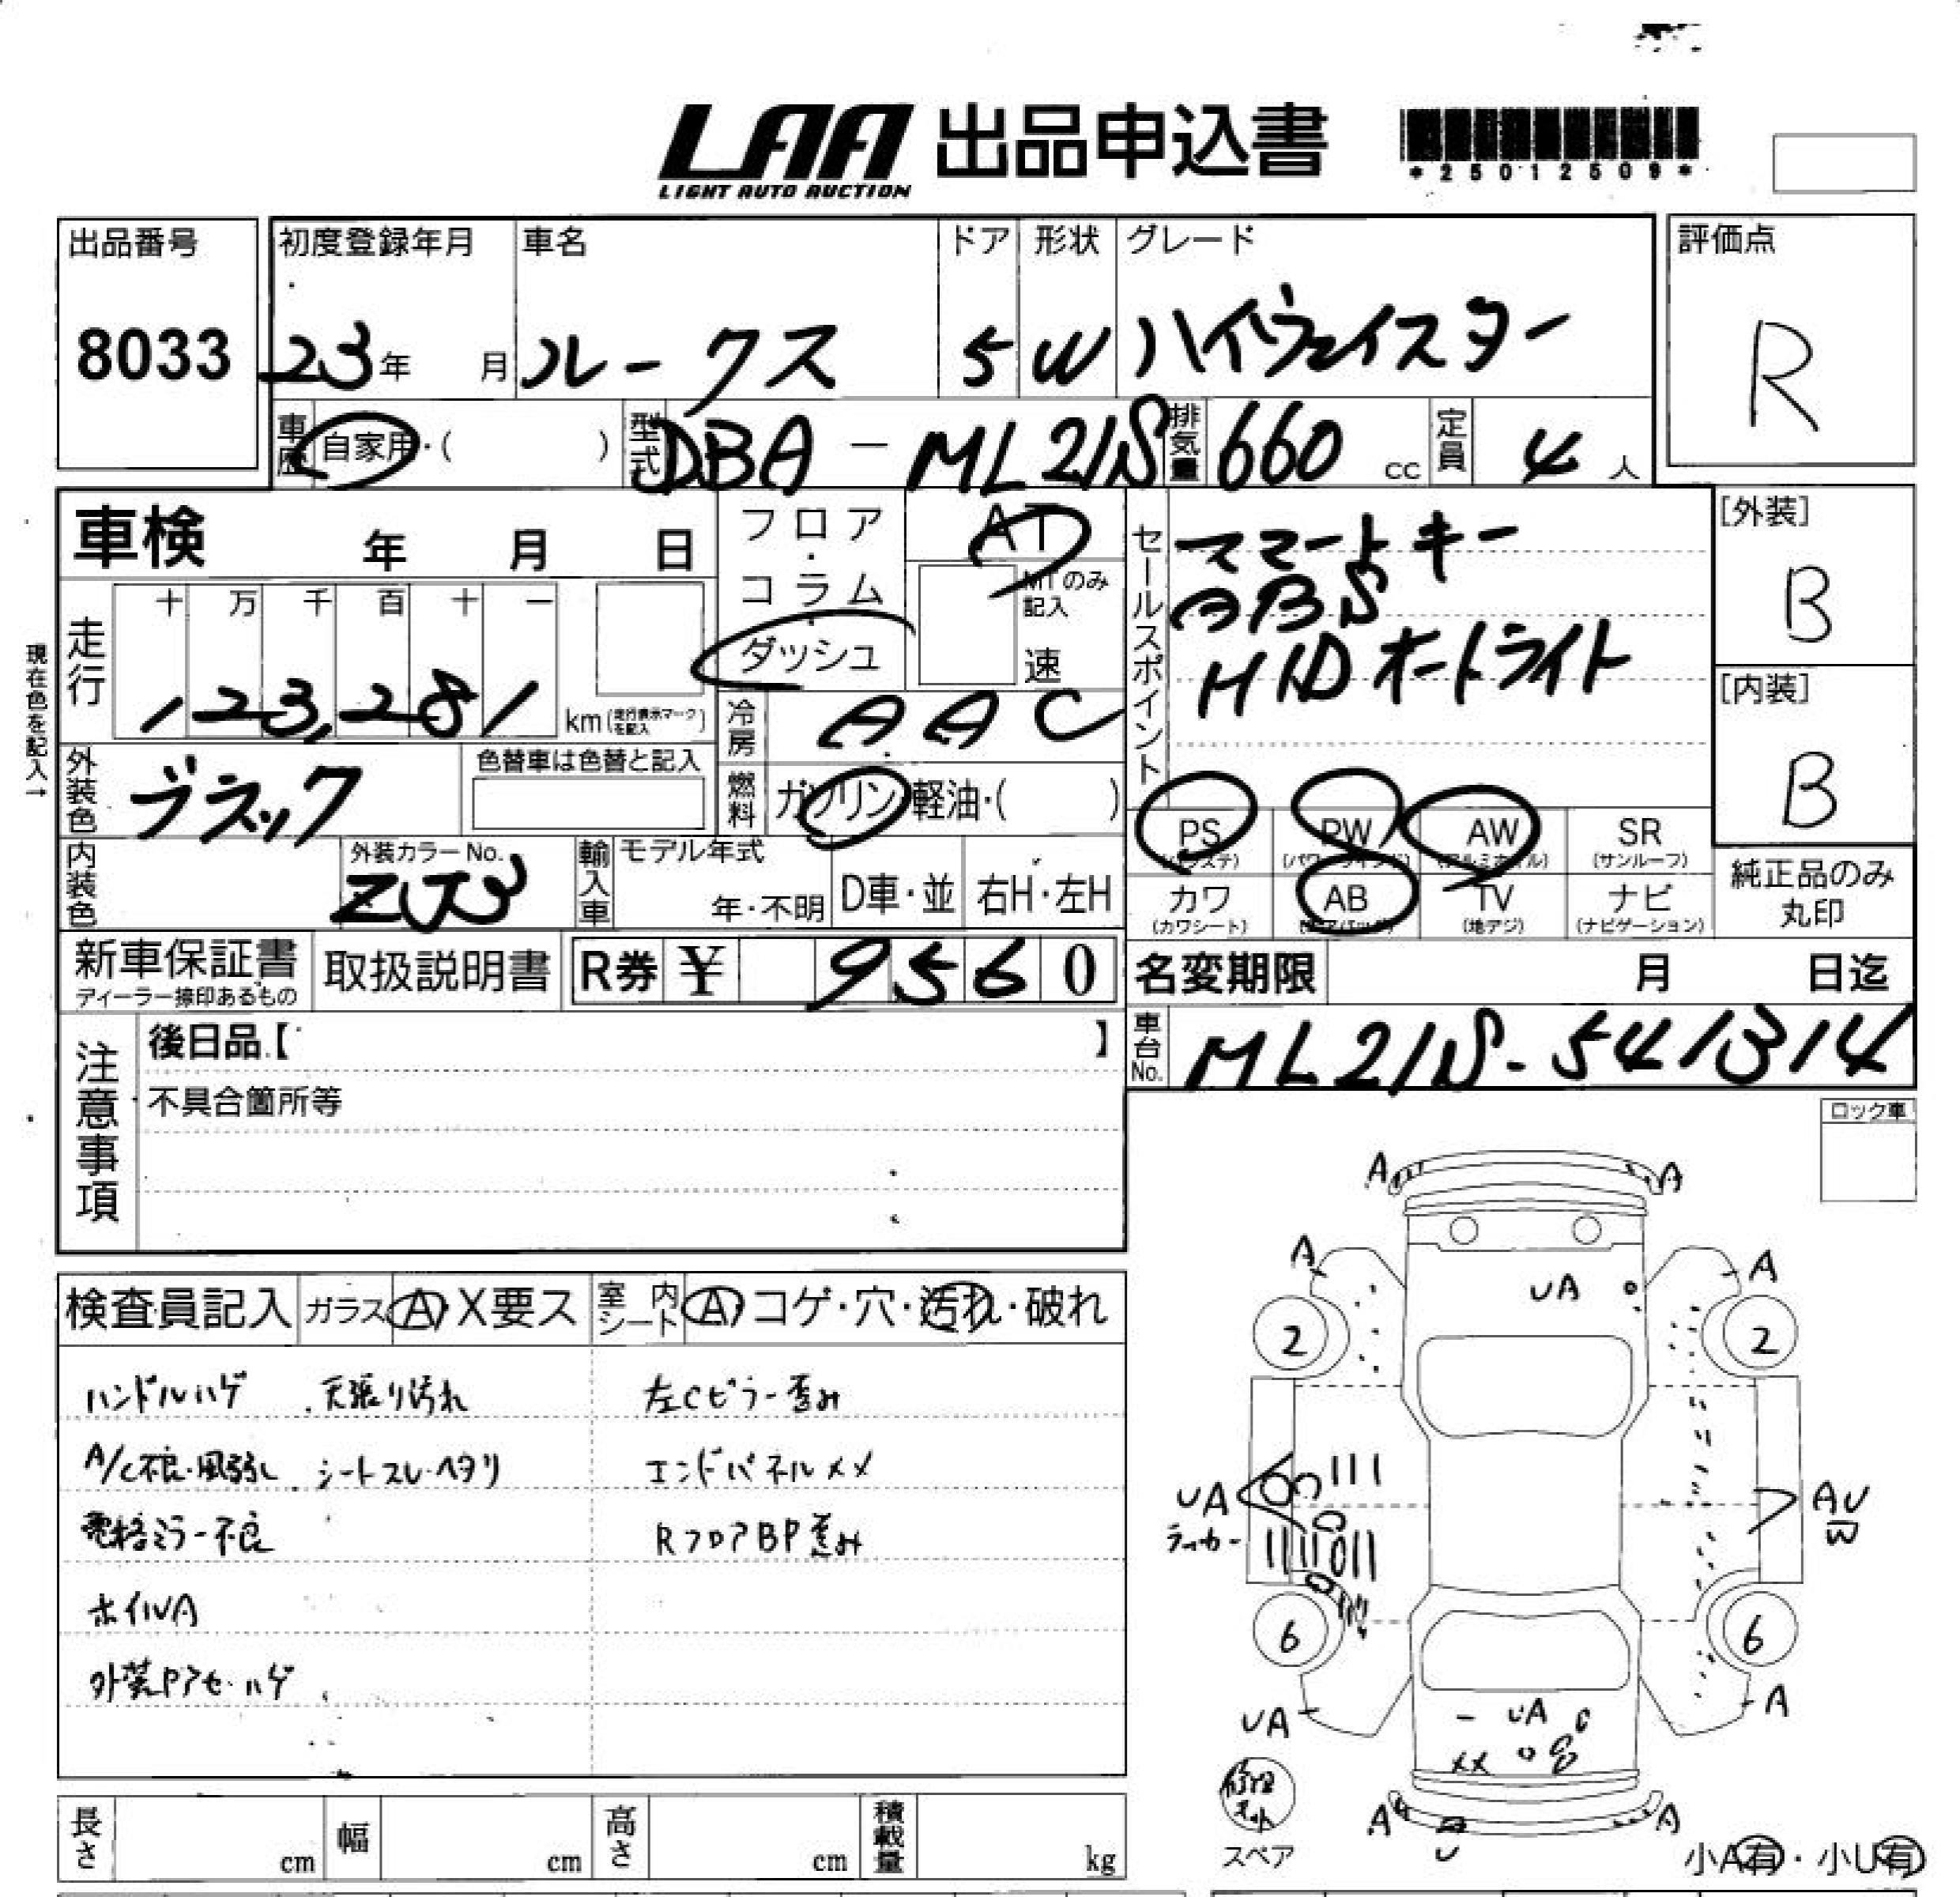 LAA 出品申込書
LIGHT AUTO AUCTION
*25012509*
出品番号 初度登録年月 車名 ドア 形状 グレード 評価点
8033 23年 月 ルークス 5 W ハイウェイスター R
車歴 自家用・( ) 型式 DBA-ML21S 排気量 660 cc 定員 4 人
車検 年 月 日
フロア・コラム・ダッシュ
AT
MTのみ記入
速
セールスポイント
スマートキー
ABS
HID オートライト
[外装]
B
[内装]
B
現在色を記入→
走行 十 万 千 百 十 一
123,281 km (走行表示マークを記入)
冷房 AAC
外装色 ブラック 色替車は色替と記入
燃料 ガソリン・軽油・( )
PS (パワステ) PW (パワーウインド) AW (アルミホイル) SR (サンルーフ)
カワ (カワシート) AB (エアバッグ) TV (地デジ) ナビ (ナビゲーション)
純正品のみ丸印
内装色 外装カラーNo. ZJ3
輸入車 モデル年式 年・不明 D車・並 右H・左H
新車保証書 ディーラー捺印あるもの 取扱説明書 R券 ¥ 9560
名変期限 月 日迄
車台No. ML21S-541314
注意事項
後日品【 】
不具合箇所等
ロック車
検査員記入 ガラス A・X要ス 室内シート A・コゲ・穴・汚れ・破れ
ハンドルハゲ 天張り汚れ 左Cピラー歪み
A/C不良・風弱し シートスレ・ヘタリ エンドパネルメメ
電格ミラー不良 RフロアBP歪み
ホイルA
外装Pアセ・ハゲ
A A
A A
UA
2 2
UA
ラッカー
AU
W
6 6
UA A
UA
XX
修理キット
スペア
A U A
小A有・小U有
長さ cm 幅 cm 高さ cm 積載量 kg